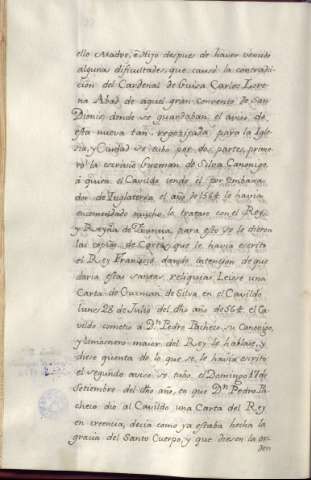 ello Madre, è Hijo despues de haver vencido
algunas dificultades, que causò la contradi-
cion del Cardenal de Guisa Carlos Lore-
na Abad de aquel gran convento de San
Dionis donde se guardaban. el aviso de
esta nueva tan regozijada para la Igle-
sia, y Ciudad se tubo por dos partes, prime-
ro la escrivio Guzman de Silva Canonigo,
à quien el Cavildo iendo èl por embaxa-
dor de Inglaterra el año de 1564. le havia
encomendado mucho lo tratase con el Rey,
y Rayna de Francia, para esto se le dieron
las copias de Cartas, que le havia escrito
el Rey Francisco dando intencion de que
daria estas santas reliquias. Leiose una
Carta de Guzman de Silva en el Cavildo
lunes 28 de Julio del dho año de 564. el Ca-
vildo cometio à Dn. Pedro Pacheco, su Canonigo,
y limosnero maior del Rey le hablase, y
diese quenta de lo que se le havia escrito
el segundo aviso se tubo, el Domingo 17 de
Setiembre del dho año, en que Dn. Pedro Pa-
checo dio al Cavildo una Carta del Rey
en creencia, decia como ya estaba hecha la
gracia del Santo Cuerpo, y que diesen la or-
den